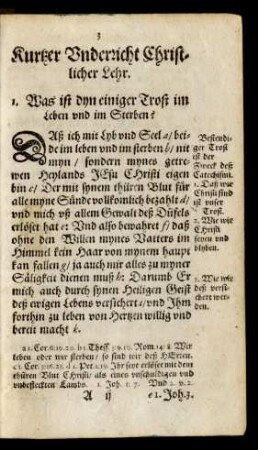 3
Kurtzer Vnderricht Christ-
licher Lehr.
1. Was ist dyn einiger Trost im
Leben vnd im Sterben?
Daß ich mit Lyb vnd Seel a/ bei-
de im leben vnd im sterben b/ nit
myn / sondern mynes getre-
wen Heylands JEsu CHristi eigen
bin c/ Der mit synem thüren Blut für
alle myne Sünde vollkomlich bezahlt d/
vnd mich vß allem Gewalt deß Düfels
erlöset hat e: Vnd also bewahret f/ daß
ohne den Willen mynes Vatters im
Himmel kein Haar von mynem haupt
kan fallen g/ ja auch mir alles zu myner
Säligkeit dienen muß h: Darumb Er
mich auch durch synen Heiligen Geist
deß ewigen Lebens versichert i/ vnd Ihm
forthin zu leben von Hertzen willig vnd
bereit macht k.
Bestendi-
ger Trost
ist der
Zweck deß
Catechismi.
1. Daß wir
Christi sind
ist vnser
Trost.
2. Wie wir
Christi
seyen vnd
blyben.
3. Wie wir
deß versi-
chert wer-
den.
a 1. Cor. 6. 19. 20. b 1. Thess. 5. 9. 10. Rom. 14. 8. Wir
leben oder wir sterben / so sind wir deß HErren.
c 1. Cor. 3. 23. d 1. Pet. 1. 19. Ihr seyt erlöset mit dem
thüren Blut CHristi / als eines vnschuldigen vnd
vnbefleckten Lambs. 1. Joh. 1. 7. Vnd 2. v. 2.
A ij e 1. Joh. 3.